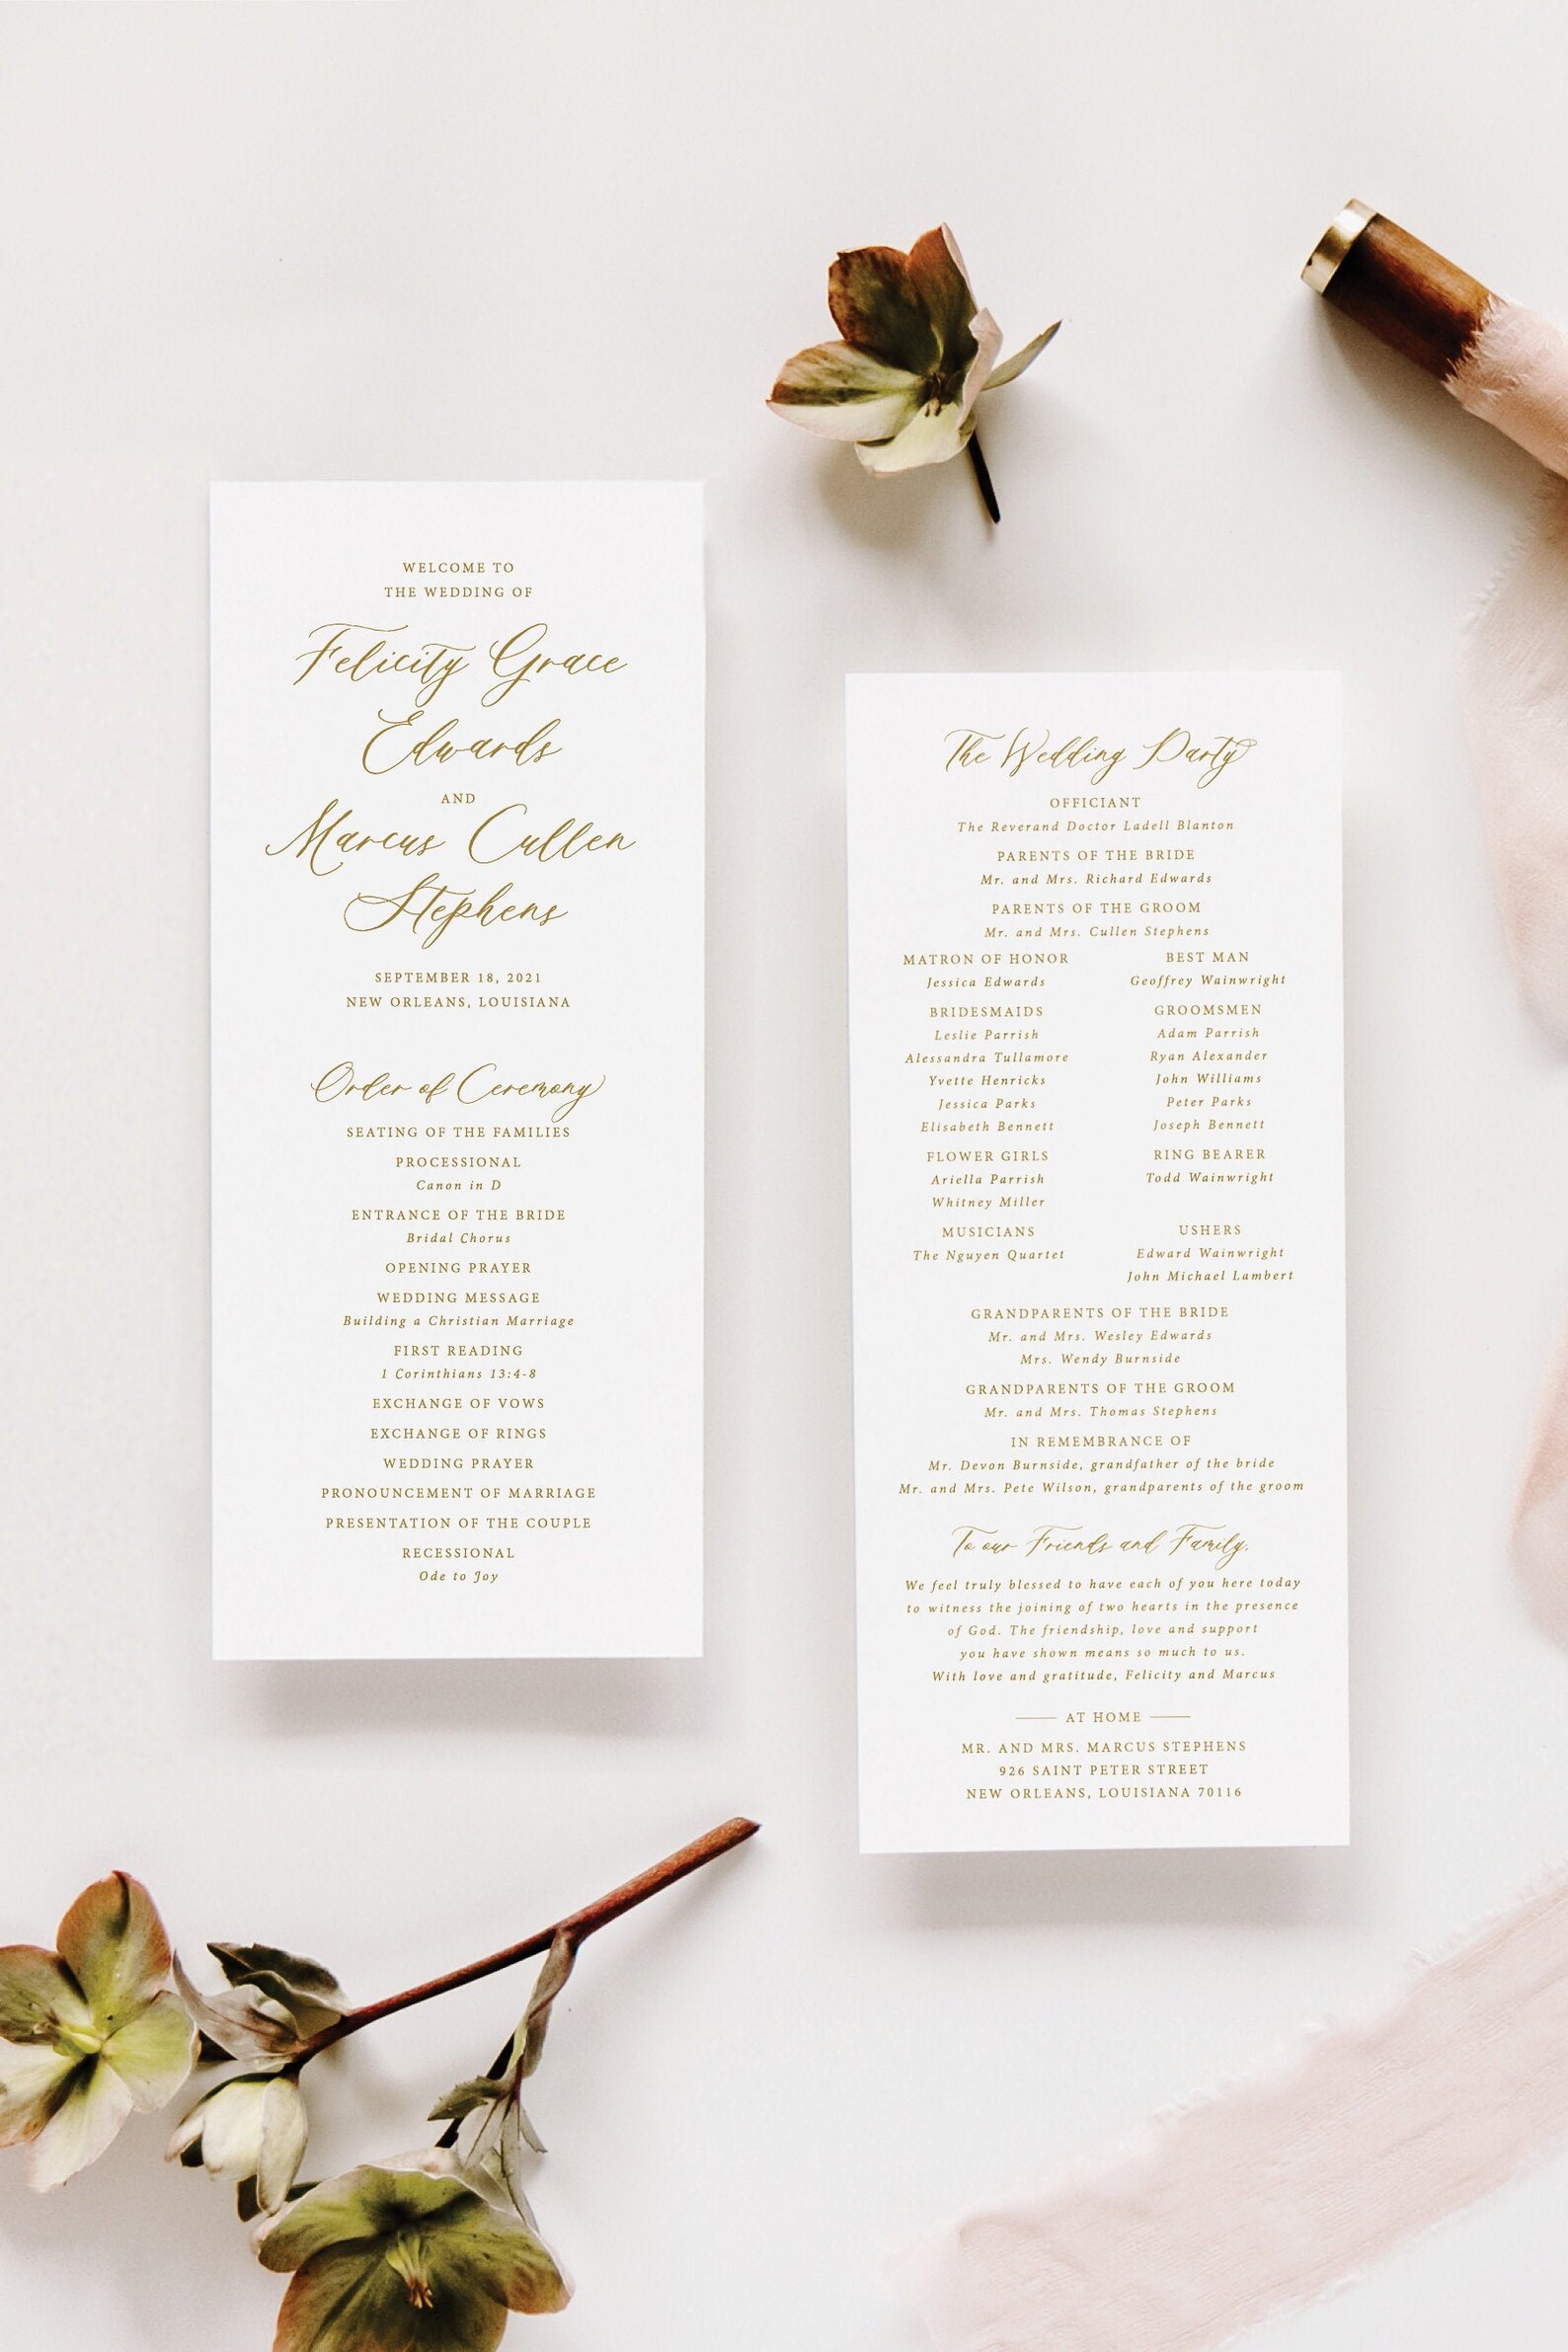 WELCOME TO
THE WEDDING OF
Felicity Grace
Edwards
AND
Marcus Cullen
Stephens
SEPTEMBER 18, 2021
NEW ORLEANS, LOUISIANA
Order of Ceremony
SEATING OF THE FAMILIES
PROCESSIONAL
Canon in D
ENTRANCE OF THE BRIDE
Bridal Chorus
OPENING PRAYER
WEDDING MESSAGE
Building a Christian Marriage
FIRST READING
1 Corinthians 13:4-8
EXCHANGE OF VOWS
EXCHANGE OF RINGS
WEDDING PRAYER
PRONOUNCEMENT OF MARRIAGE
PRESENTATION OF THE COUPLE
RECESSIONAL
Ode to Joy
The Wedding Party
OFFICIANT
The Reverand Doctor Ladell Blanton
PARENTS OF THE BRIDE
Mr. and Mrs. Richard Edwards
PARENTS OF THE GROOM
Mr. and Mrs. Cullen Stephens
MATRON OF HONOR
Jessica Edwards
BRIDESMAIDS
Leslie Parrish
Alessandra Tullamore
Yvette Henricks
Jessica Parks
Elisabeth Bennett
FLOWER GIRLS
Ariella Parrish
Whitney Miller
MUSICIANS
The Nguyen Quartet
BEST MAN
Geoffrey Wainwright
GROOMSMEN
Adam Parrish
Ryan Alexander
John Williams
Peter Parks
Joseph Bennett
RING BEARER
Todd Wainwright
USHERS
Edward Wainwright
John Michael Lambert
GRANDPARENTS OF THE BRIDE
Mr. and Mrs. Wesley Edwards
Mrs. Wendy Burnside
GRANDPARENTS OF THE GROOM
Mr. and Mrs. Thomas Stephens
IN REMEMBRANCE OF
Mr. Devon Burnside, grandfather of the bride
Mr. and Mrs. Pete Wilson, grandparents of the groom
To our Friends and Family,
We feel truly blessed to have each of you here today
to witness the joining of two hearts in the presence
of God. The friendship, love and support
you have shown means so much to us.
With love and gratitude, Felicity and Marcus
AT HOME
MR. AND MRS. MARCUS STEPHENS
926 SAINT PETER STREET
NEW ORLEANS, LOUISIANA 70116